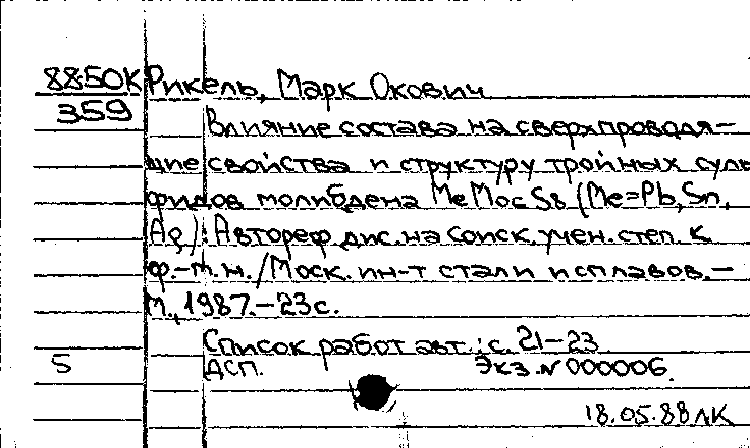 88-50К Рикель, Марк Окович
359
Влияние состава на сверхпроводя-
щие свойства и структуру тройных суль
фидов молибдена MeMo6S8 (Me=Pb, Sn,
Ag): Автореф. дис. на соиск. учен. степ. к.
ф.-м. н. / Моск. ин-т стали и сплавов. -
М., 1987. - 23 с.
Список работ авт.: с. 21-23
5 ДСП. Экз. N 000006.
18.05.88 ЛК